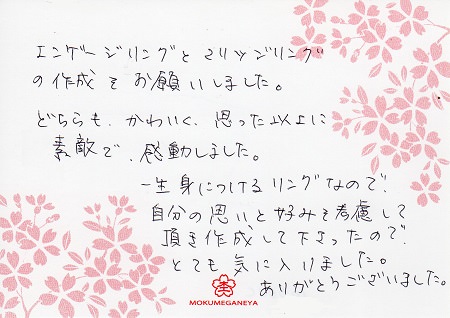 エンゲージリングとマリッジリング
の作成をお願いしました。
どちらも、かわいく、思った以上に
素敵で、感動しました。
一生身につけるリングなので、
自分の思いと好みを考慮して
頂き作成して下さったので、
とても気に入けました。
ありがとうございました。
MOKUMEGANEYA